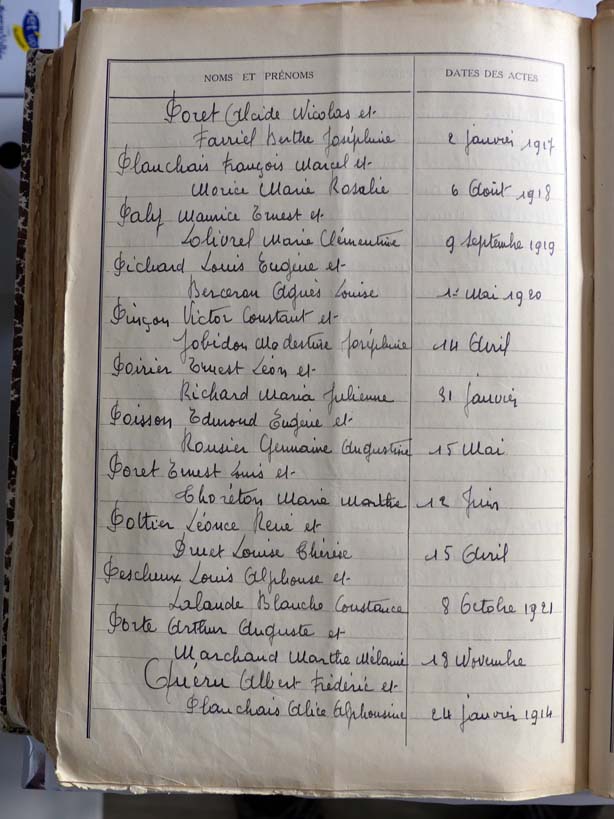 NOMS ET PRÉNOMS DATES DES ACTES
Poret Alcide Nicolas et
Farriel Berthe Joséphine 2 janvier 1917
Planchais François Marcel et
Morice Marie Rosalie 6 Août 1918
Paly Maurice Ernest et
Lolivrel Marie Clémentine 9 Septembre 1919
Pichard Louis Eugène et
Berceron Agnès Louise 1er Mai 1920
Pinçon Victor Constant et
Jobidon Modestine Joséphine 14 Avril
Poirier Ernest Léon et
Richard Maria Julienne 31 Janvier
Poisson Edmond Eugène et
Rousier Germaine Augustine 15 Mai
Poret Ernest Louis et
Thoréton Marie Marthe 12 Juin
Pottier Léonce René et
Druet Louise Thérèse 15 Avril
Pescheux Louis Alphonse et
Lalande Blanche Constance 8 Octobre 1921
Porte Arthur Auguste et
Marchand Marthe Mélanie 18 Novembre
Quéru Albert Frédéric et
Planchais Alice Alphonsine 24 janvier 1914